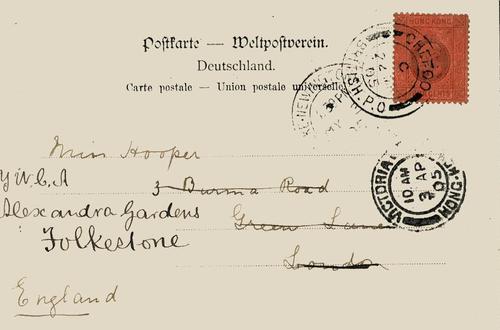 Postkarte — Weltpostverein.
Deutschland.
Carte postale — Union postale universelle
HONG KONG
CHEFOO
BRITISH P.O.
Miss Hooper
Y.W.C.A 3 Burma Road
Alexandra Gardens Green Lanes
Folkestone London
England
VICTORIA HONG
10 AM
3 AP
05